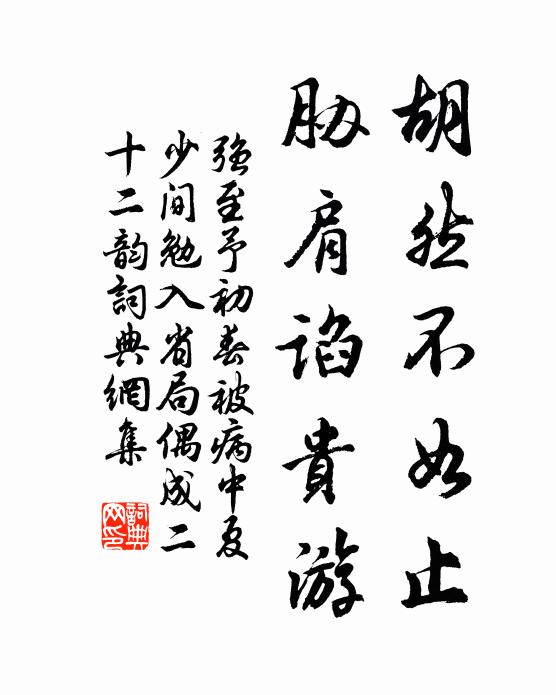 胡然不如止
胁肩谄貴游
强至予初春被病中夏
少间勉入省局偶成二
十二韵詞典網集
詞典网印